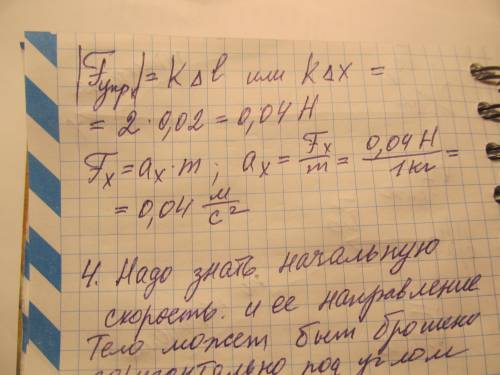 |Fупр| = kΔl или kΔx =
= 2 · 0,02 = 0,04 Н
Fx = ax · m ; ax = Fx/m = 0,04 Н/1 кг =
= 0,04 м/с²
4. Надо знать начальную
скорость и ее направление
Тело может быт брошено
горизонтально под углом